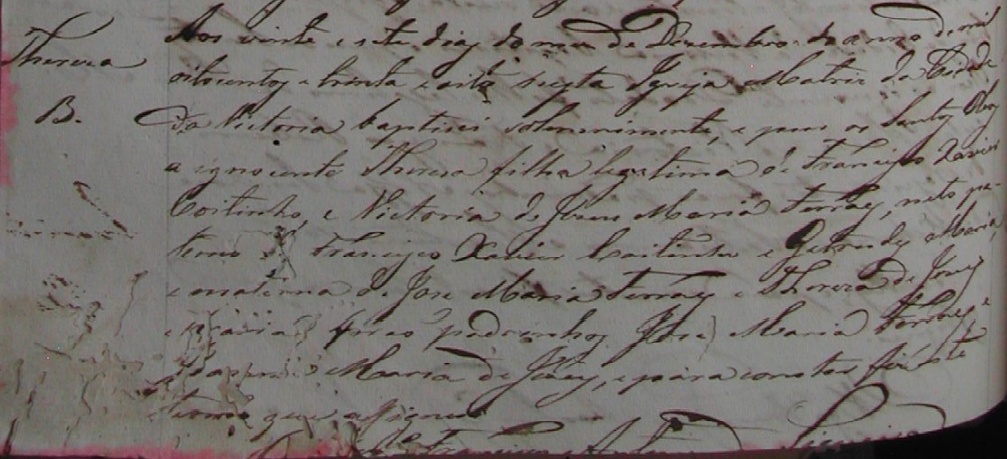 Thereza
B.
Aos vinte e sete dias do mes de Dezembro do anno de mil
oitocentos e trinta e oito nesta Igreja Matriz da Cidade
da Victoria baptisei solemnimente, e pus os Santos Oleos
a ignocente Thereza filha legitima de Francisco Xavier
Coitinho, e Victoria de Jesus Maria Ferraz, neto pa-
terno de Francisco Xavier Coitinho e Getrudes Maria,
e materna de Jose Maria Ferraz e Thereza de Jesus
Maria forão padrinhos Jose Maria Ferraz e
Maria de Jesus, e para constar fiz este
termo que asignei
Francisco Antunes